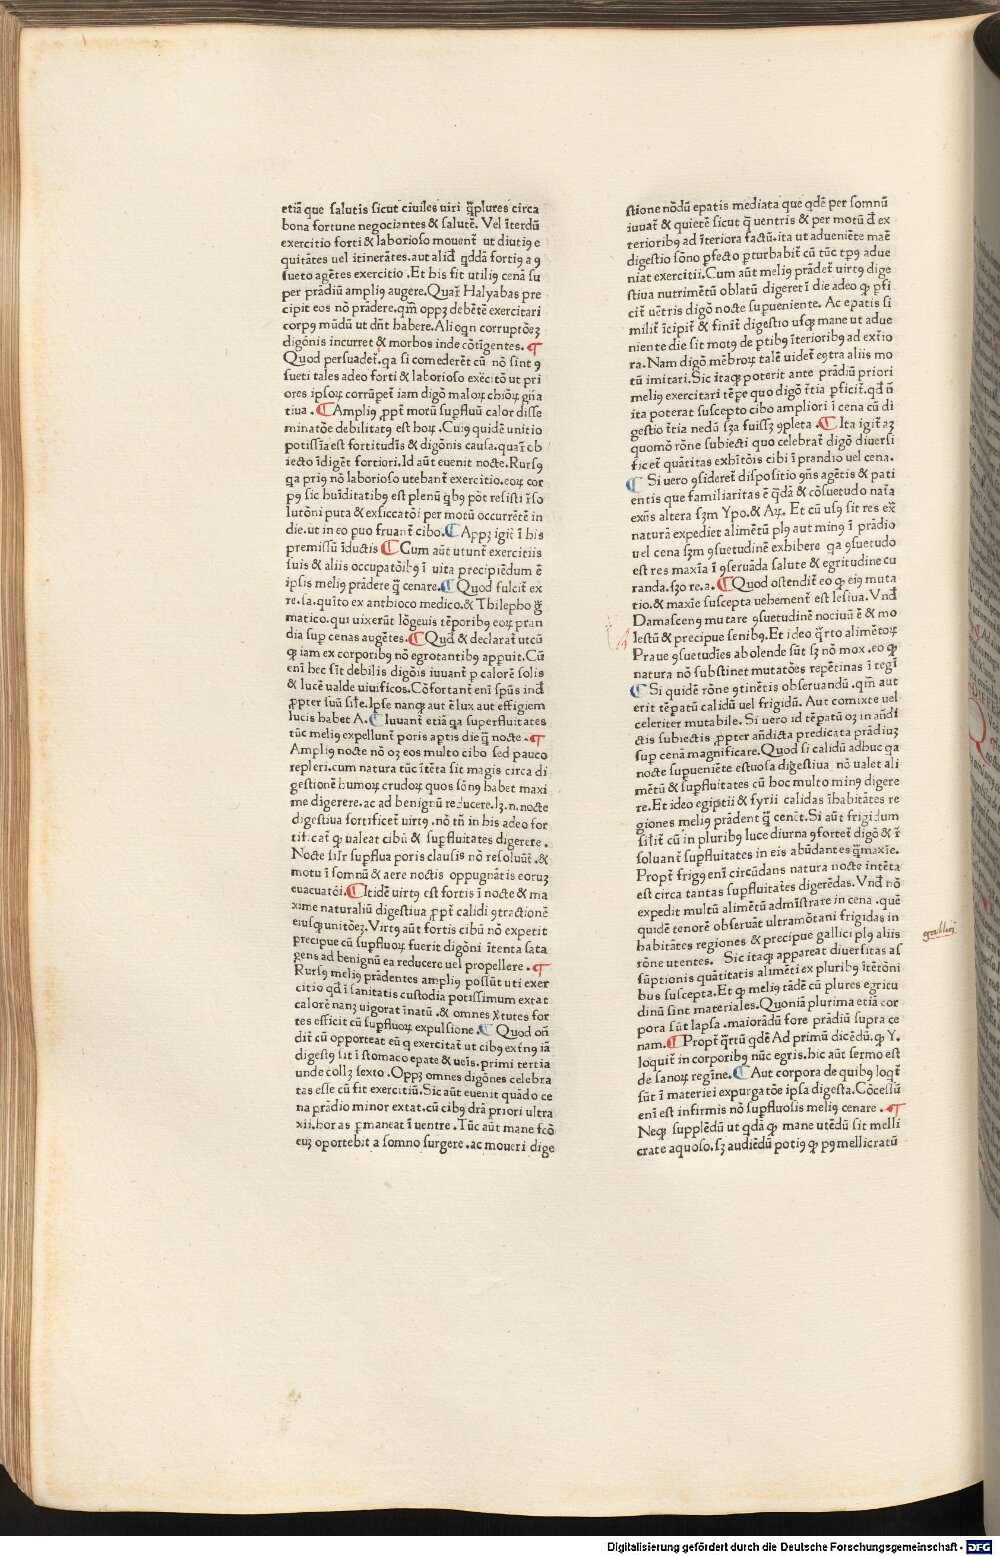 etiā que salutis sicut ciuiles uiri q̄plures circa
bona fortune negociantes & salutē. Vel īterdū
exercitio forti & laborioso mouent᷑ ut diutiꝯ e
quitātes uel itinerātes.aut alid᷑ qddā fortiꝯ a ꝯ
sueto agētes exercitio .Et his fit utiliꝯ cenā su
per prādiū ampliꝯ augere.Quar᷑ Halyabas pre
cipit eos nō prādere.qm̄ oppꝫ debētē exercitari
corpꝯ mūdū ut dn̄t habere.Alioqn corruptōeꝫ
digōnis incurret & morbos inde cōtīgentes. ¶
Quod persuadet᷑.qa si comederēt cū nō sint ꝯ
sueti tales adeo forti & laborioso exēcitō ut pri
ores ipsoꝝ corrūpet᷑ iam digō maloꝝ chiōꝝ gn̄a
tiua . ¶Ampliꝯ ꝓpt᷑ motū supfluū calor disse
minatōe debilitatꝯ est hoꝝ. Cuiꝯ quidē unitio
potissīa est fortitudīs & digōnis causa.quar᷑ ob
iecto īdigēt fortiori.Id aūt euenit nocte.Rursꝯ
qa priꝯ nō laborioso utebant᷑ exercitio.eoꝝ cor
pꝯ sic huīditatibꝯ est plenū qbꝯ pōt resisti ī so
lutōni puta & exsiccatōi per motū occurrētē in
die.ut in eo quo fruant᷑ cibo.¶Appꝫ igit᷑ ī his
premissū īductis ¶Cum aūt utunt᷑ exercitiis
suis & aliis occupatōibꝯ ī uita precipiēdum ē
ipsis meliꝯ prādere q̄ cenare.¶Quod fulcit᷑ ex
re.sa.quīto ex anthioco medico.& Thilepho g̅
matico.qui uixerūt lōgeuis tēporibꝯ eoꝝ pran
dia sup cenas augētes.¶Qud̄ & declarat᷑ utcū
qꝫ iam ex corporibꝯ nō egrotantibꝯ appuit.Cū
enī hec sīt debilis digōis iuuant᷑ p calorē solis
& lucē ualde uiuificos.Cōfortant᷑ enī spūs ind᷑
ꝓpter suū sīle.Ipse nanqꝫ aut ē lux aut effigiem
lucis habet A.¶Iuuant᷑ etiā qa superfluitates
tūc meliꝯ expellunt᷑ poris aptis die q̄ nocte . ¶
Ampliꝯ nocte nō oꝫ eos multo cibo sed pauco
repleri.cum natura tūc ītēta sit magis circa di
gestionē humoꝝ crudoꝝ quos sōnꝯ habet maxi
me digerere.ac ad benignū reducere.lꝫ.n.nocte
digestiua fortificet᷑ uirtꝯ.nō tn̄ in his adeo for
tificat᷑ qꝫ ualeat cibū & supfluitates digerere .
Nocte silr supflua poris clausis nō resoluūt᷑ .&
motu ī somnū & aere noctis oppugnātis eoruꝫ
euacuatōi.¶Itidē uirtꝯ est fortis ī nocte & ma
xime naturaliū digestiua ꝓpt᷑ calidi ꝯtractionē
eiusqꝫ unitōeꝫ.Virtꝯ aūt fortis cibū nō expetit
precipue cū supfluoꝝ fuerit digōni ītenta sata
gens ad benignū ea reducere uel propellere . ¶
Rursꝯ meliꝯ prādentes ampliꝯ possūt uti exer
citio qd̄ ī sanitatis custodia potissimum extat
calorē nanqꝫ uigorat īnatū .& omnes xtutes for
tes efficit cū supfluoꝝ expulsione .¶ Quod on̄
dit᷑ cū opporteat eū q exercitat᷑ ut cibꝯ extn̄ꝯ iā
digestꝯ sit ī stomaco epate & ueīs.primi tertia
unde collꝫ sexto .Oppꝫ omnes digōnes celebra
tas esse cū fit exercitiū.Sic aūt euenit quādo ce
na prādio minor extat.cū cibꝯ drā priori ultra
xii.horas pmaneat ī uentre .Tūc aūt mane scō
euꝫ oportebit a somno surgere .ac moueri dige
stione nōdū epatis mediata que qdē per somnū
iuuat᷑ & quietē sicut q̄ uentris & per motū d᷑ ex
terioribꝯ ad īteriora factū.ita ut adueniēte maē
digestio sōno pfecto pturbabit᷑ cū tūc tpꝯ adue
niat exercitii.Cum aūt meliꝯ prādet᷑ uirtꝯ dige
stiua nutrimētū oblatū digeret ī die adeo qꝫ pfi
cit᷑ uētris digō nocte supueniente. Ac epatis si
militꝫ īcipit᷑ & finit᷑ digestio usqꝫ mane ut adue
niente die sit motꝯ de ptibꝯ īterioribꝯ ad ext᷑io
ra.Nam digō mēbroꝝ talē uidet᷑ extra aliis mo
tū imitari.Sic itaqꝫ poterit ante prādiū priori
meliꝯ exercitari tēpe quo digō t᷑tia pficit᷑.qd̄ n̄
ita poterat suscepto cibo ampliori ī cena cū di
gestio t᷑tia nedū sꝫa fuissꝫ ꝯpleta .¶ Ita igit᷑ aꝫ
quomō rōne subiecti quo celebrat᷑ digō diuersi
ficet᷑ quātitas exhītōis cibi ī prandio uel cena.
¶ Si uero ꝯsideret᷑ dispositio ꝯn̄s agētis & pati
entis que familiaritas ē qdā & cōsuetudo nat᷑a
exn̄s altera sꝫm Ypo.& Aꝝ. Et cū usꝯ sit res ex̄
naturā expediet alimētū plꝯ aut minꝯ ī prādio
uel cena sꝫm ꝯsuetudinē exhibere qa ꝯsuetudo
est res maxīa ī ꝯseruāda salute & egritudine cu
randa.sꝫo re.a.¶Quod ostendit᷑ eo qꝫ eiꝯ muta
tio.& maxīe suscepta uehement᷑ est lesiua.Vnd᷑
Damascenꝯ mutare ꝯsuetudinē nociuū ē & mo
lestū & precipue senibꝯ.Et ideo q̄rto alimētoꝝ
Praue ꝯsuetudīes abolende sūt sꝫ nō mox .eo qꝫ
natura nō substinet mutatōes repētinas ī tegī
¶ Si quidē rōne ꝯtinētis obseruandū .qm̄ aut
erit tēpatū calidū uel frigidū. Aut comixte uel
celeriter mutabile. Si uero id tēpatū oꝫ in an̄di
ctis subiectis ꝓpter an̄dicta predicata prādiuꝫ
sup cenā magnificare.Quod si calidū adhuc qa
nocte supueniēte estuosa digestiua nō ualet ali
mētū & supfluitates cū hoc multo minꝯ digere
re.Et ideo egiptii & syrii calidas īhabitātes re
giones meliꝯ prādent q̄ cenēt.Si aūt frigidum
silit᷑ cū in pluribꝯ luce diurna ꝯfortet᷑ digō & r̄
soluant᷑ supfluitates in eis abūdantes q̄maxīe.
Propt᷑ frigꝯ enī circūdans natura nocte intēta
est circa tantas supfluitates digerēdas.Vnd᷑ nō
expedit multū alimētū admīstrare in cena .quē
quidē tenorē obseruāt ultramōtani frigidas in
habitātes regiones & precipue gallici plꝯ aliis
rōne utentes. Sic itaqꝫ appareat diuersitas as
sūptionis quātitatis alimēti ex pluribꝯ ītētōni
bus suscepta.Et qꝫ meliꝯ tādē cū plures egritu
dinū sint materiales.Quoniā plurima etiā cor
pora sūt lapsa .maiorādū fore prādiū supra ce
nam.¶Propt᷑ q̄rtū qdē Ad primū dicēdū.qꝫ Y.
loquit᷑ in corporibꝯ nūc egris.hic aūt sermo est
de sanoꝝ regīne.¶Aut corpora de quibꝯ loqt᷑
sūt ī materiei expurgatōe ipsa digesta.Cōcessū
enī est infirmis nō supfluosis meliꝯ cenare . ¶
Neqꝫ supplēdū ut qdā qꝫ mane utēdū sit melli
crate aquoso.sꝫ audiēdū potiꝯ qꝫ pꝯ mellicratū
gallici
Digitalisierung gefördert durch die Deutsche Forschungsgemeinschaft - DFG